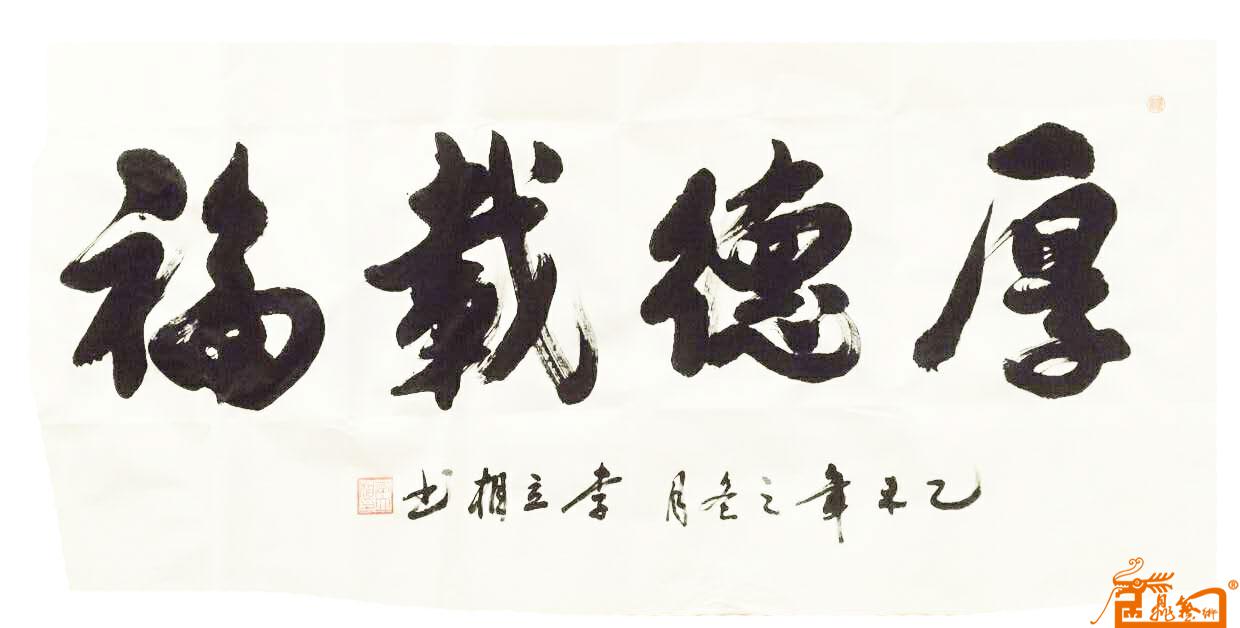 厚德载福
乙未年之冬月 李立相书